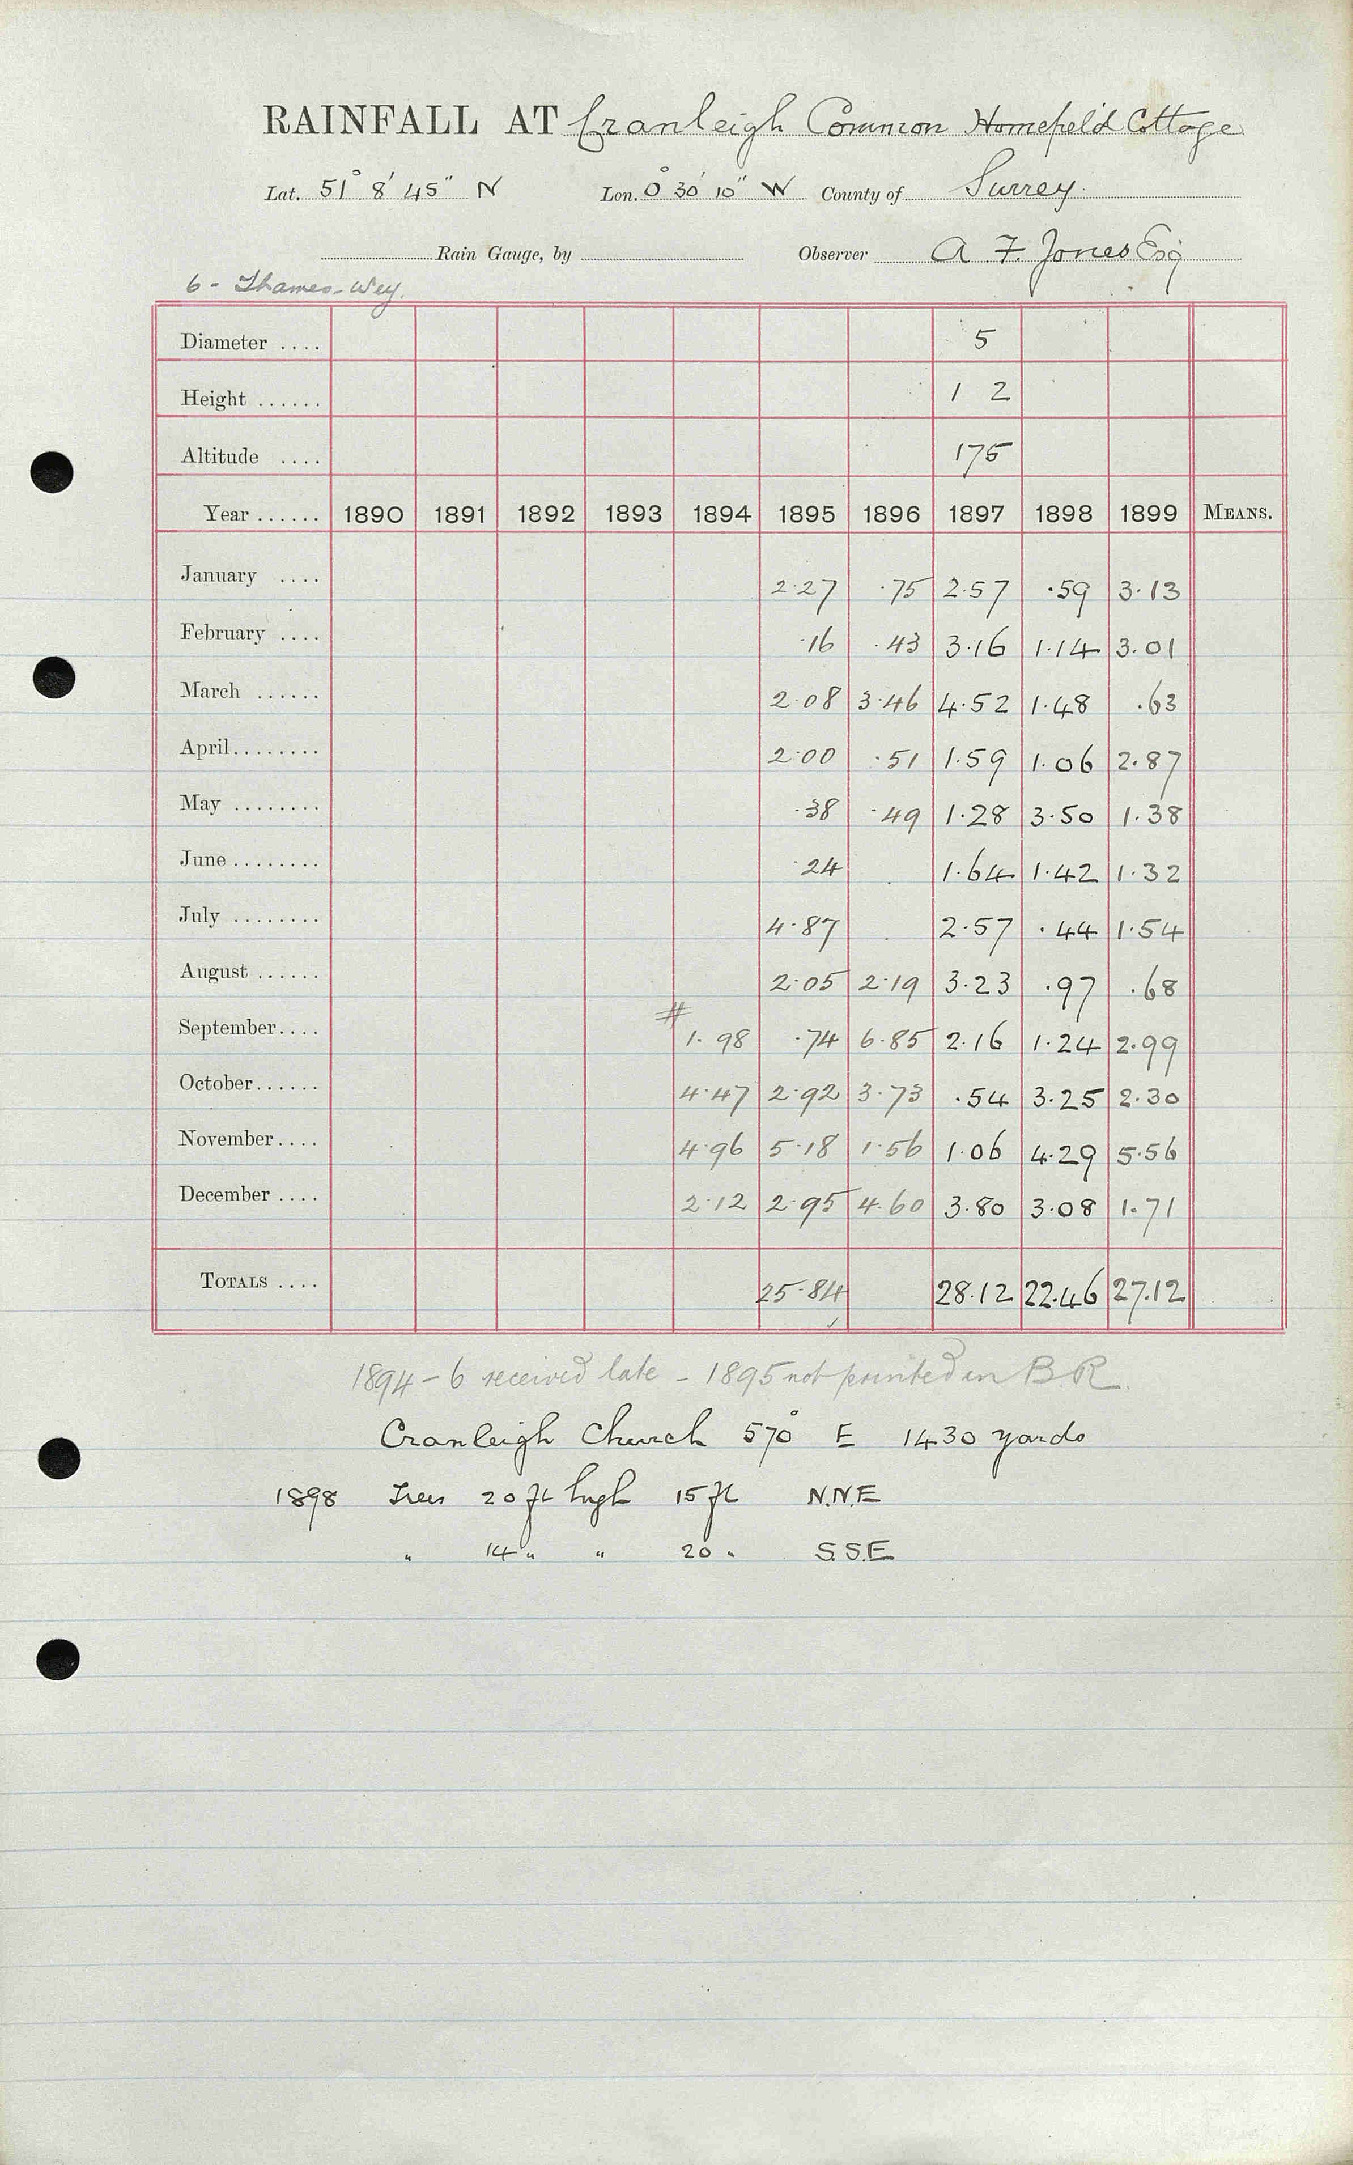 RAINFALL AT Cranleigh Common Homefield Cottage
Lat. 51° 8' 45" N Lon. 0° 30' 10" W County of Surrey.
Rain Gauge, by Observer A. F. Jones Esq
6 - Thames - Wey.
Diameter .... 5
Height ...... 1 2
Altitude .... 175
Year ...... 1890 1891 1892 1893 1894 1895 1896 1897 1898 1899 MEANS.
January .... 2.27 .75 2.57 .59 3.13
February .... .16 .43 3.16 1.14 3.01
March ...... 2.08 3.46 4.52 1.48 .63
April........ 2.00 .51 1.59 1.06 2.87
May ........ .38 .49 1.28 3.50 1.38
June ........ .24 1.64 1.42 1.32
July ........ 4.87 2.57 .44 1.54
August ...... 2.05 2.19 3.23 .97 .68
#
September.... 1.98 .74 6.85 2.16 1.24 2.99
October...... 4.47 2.92 3.73 .54 3.25 2.30
November.... 4.96 5.18 1.56 1.06 4.29 5.56
December .... 2.12 2.95 4.60 3.80 3.08 1.71
TOTALS .... 25.84 28.12 22.46 27.12
1894-6 received late - 1895 not printed in B R.
Cranleigh Church S70° E 1430 yards
1898 Trees 20 ft high 15 ft N.N.E
" 14 " " 20 " S.S.E